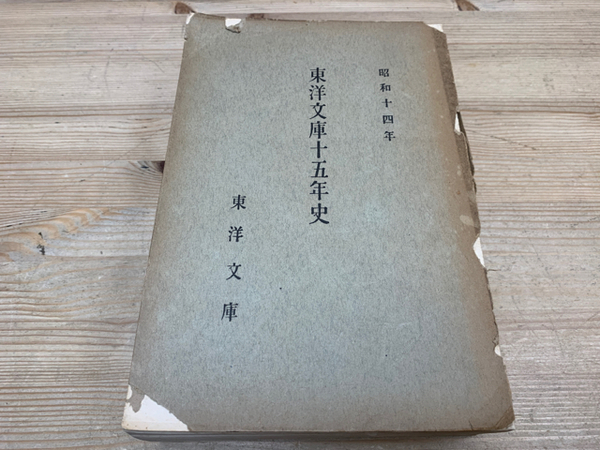 昭和十四年
東洋文庫十五年史
東洋文庫